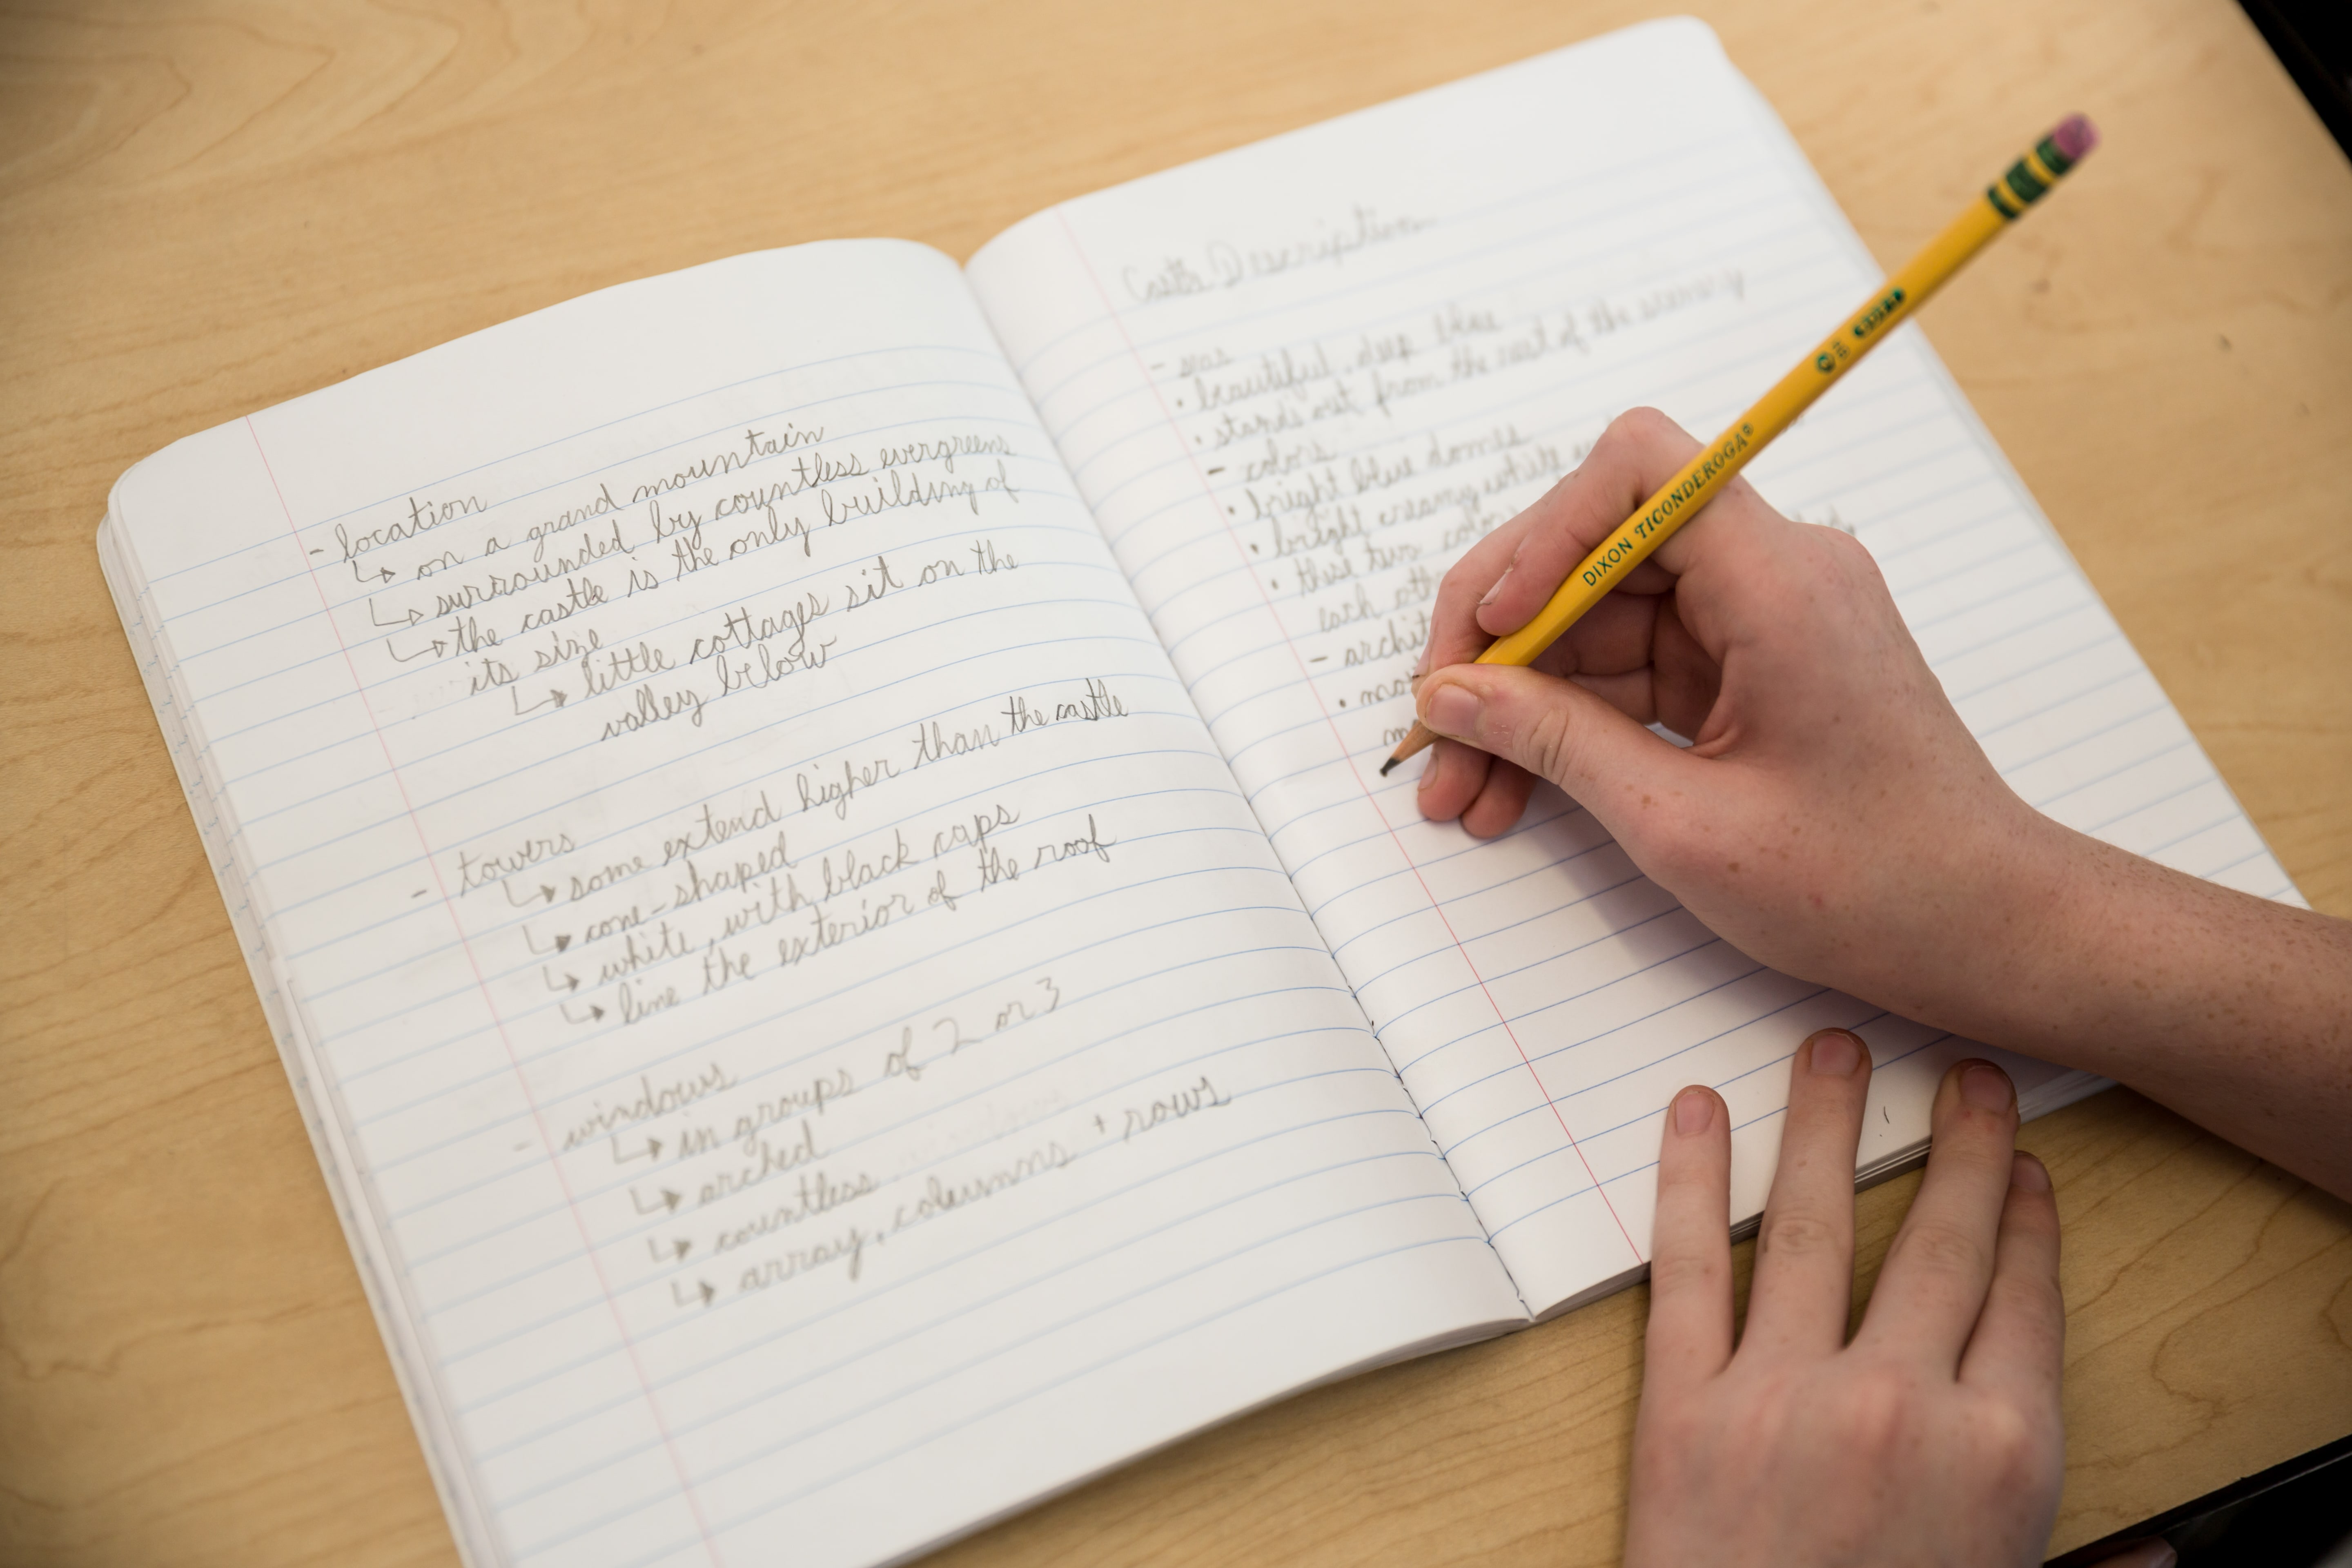 - location
↳ on a grand mountain
↳ surrounded by countless evergreens
↳ the castle is the only building of
its size
↳ little cottages sit on the
valley below
- towers
↳ some extend higher than the castle
↳ cone-shaped
↳ white, with black caps
↳ line the exterior of the roof
- windows
↳ in groups of 2 or 3
↳ arched
↳ countless
↳ array, columns + rows
Castle Description
-
• beautiful, deep blue
• stands out from the rest of the scenery
- colors
• bright blue domes
• bright creamy white
• these two colors
each
- archit
•
DIXON TICONDEROGA®